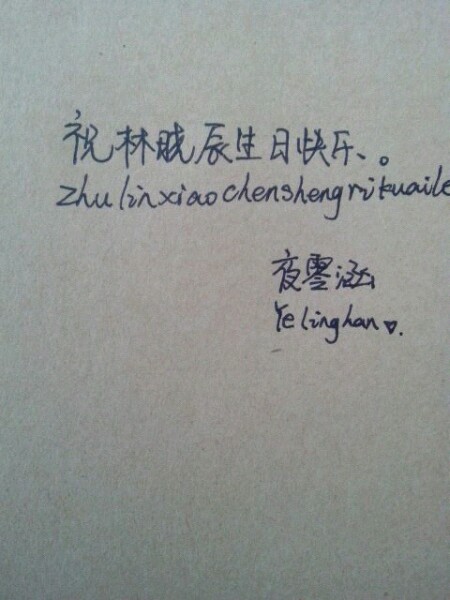 祝林晓辰生日快乐、。
zhulinxiaochenshengrikuaile
夜零涵
Yelinghan♡.